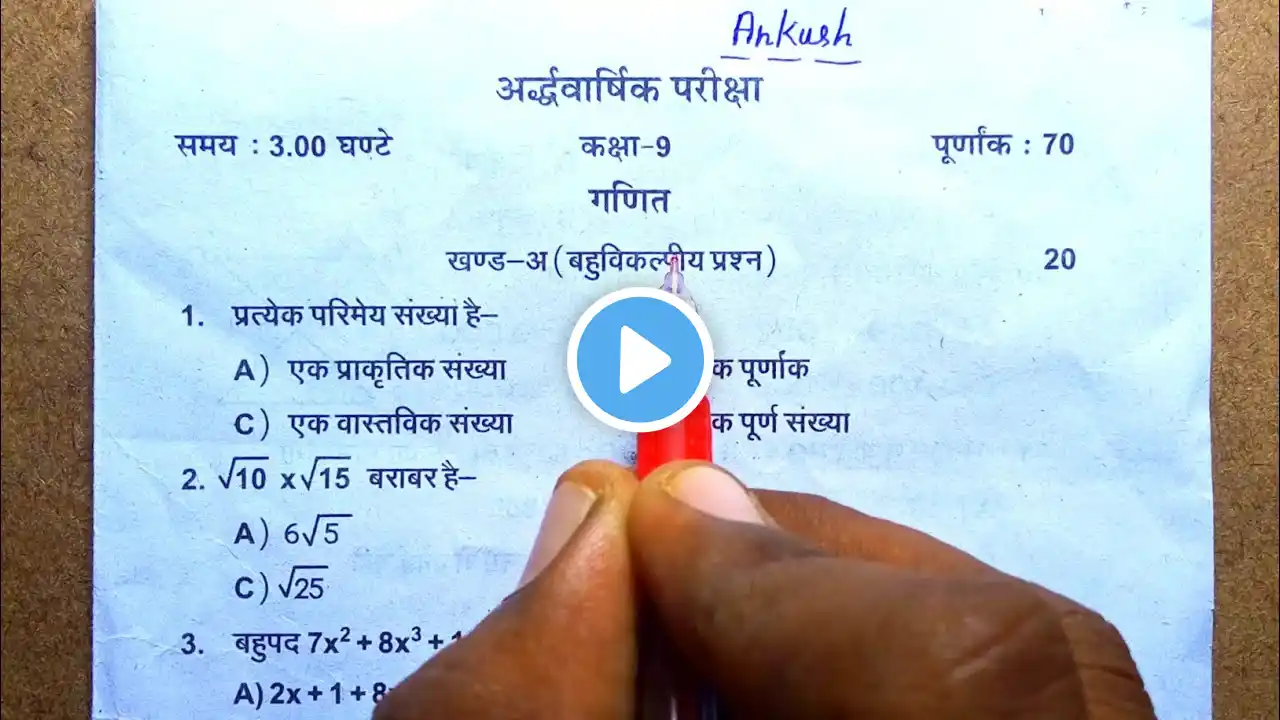 Ankush
अर्द्धवार्षिक परीक्षा
समय : 3.00 घण्टे कक्षा-9 पूर्णांक : 70
गणित
खण्ड-अ (बहुविकल्पीय प्रश्न) 20
1. प्रत्येक परिमेय संख्या है–
A) एक प्राकृतिक संख्या पूर्णाक
C) एक वास्तविक संख्या पूर्ण संख्या
2. √10 x √15 बराबर है–
A) 6√5
C) √25
3. बहुपद 7x² + 8x³ +
A) 2x + 1 + 8